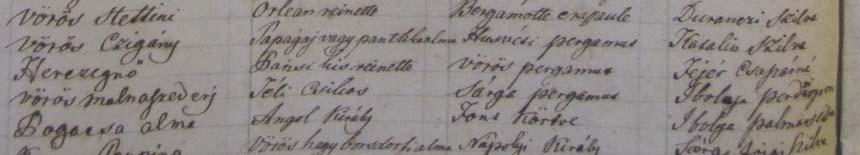 vörös Stettini Orlean reinette Bergamotte crapaule Duranczi Szilva
vörös Czigány Papagaj vagy pantlika alma Husvéti pergamut Katalin Szilva
Herczegnö Párisi kis reinette vörös pergamut Fejér Csapáré
vörös malnaszederj Téli Csikos Sárga pergamut Ibolya perdigon
Pogacsa alma Angol Király Font Körtve Ibolya
Vörös hegy borsdorfi alma Nápolyi Király Szilva